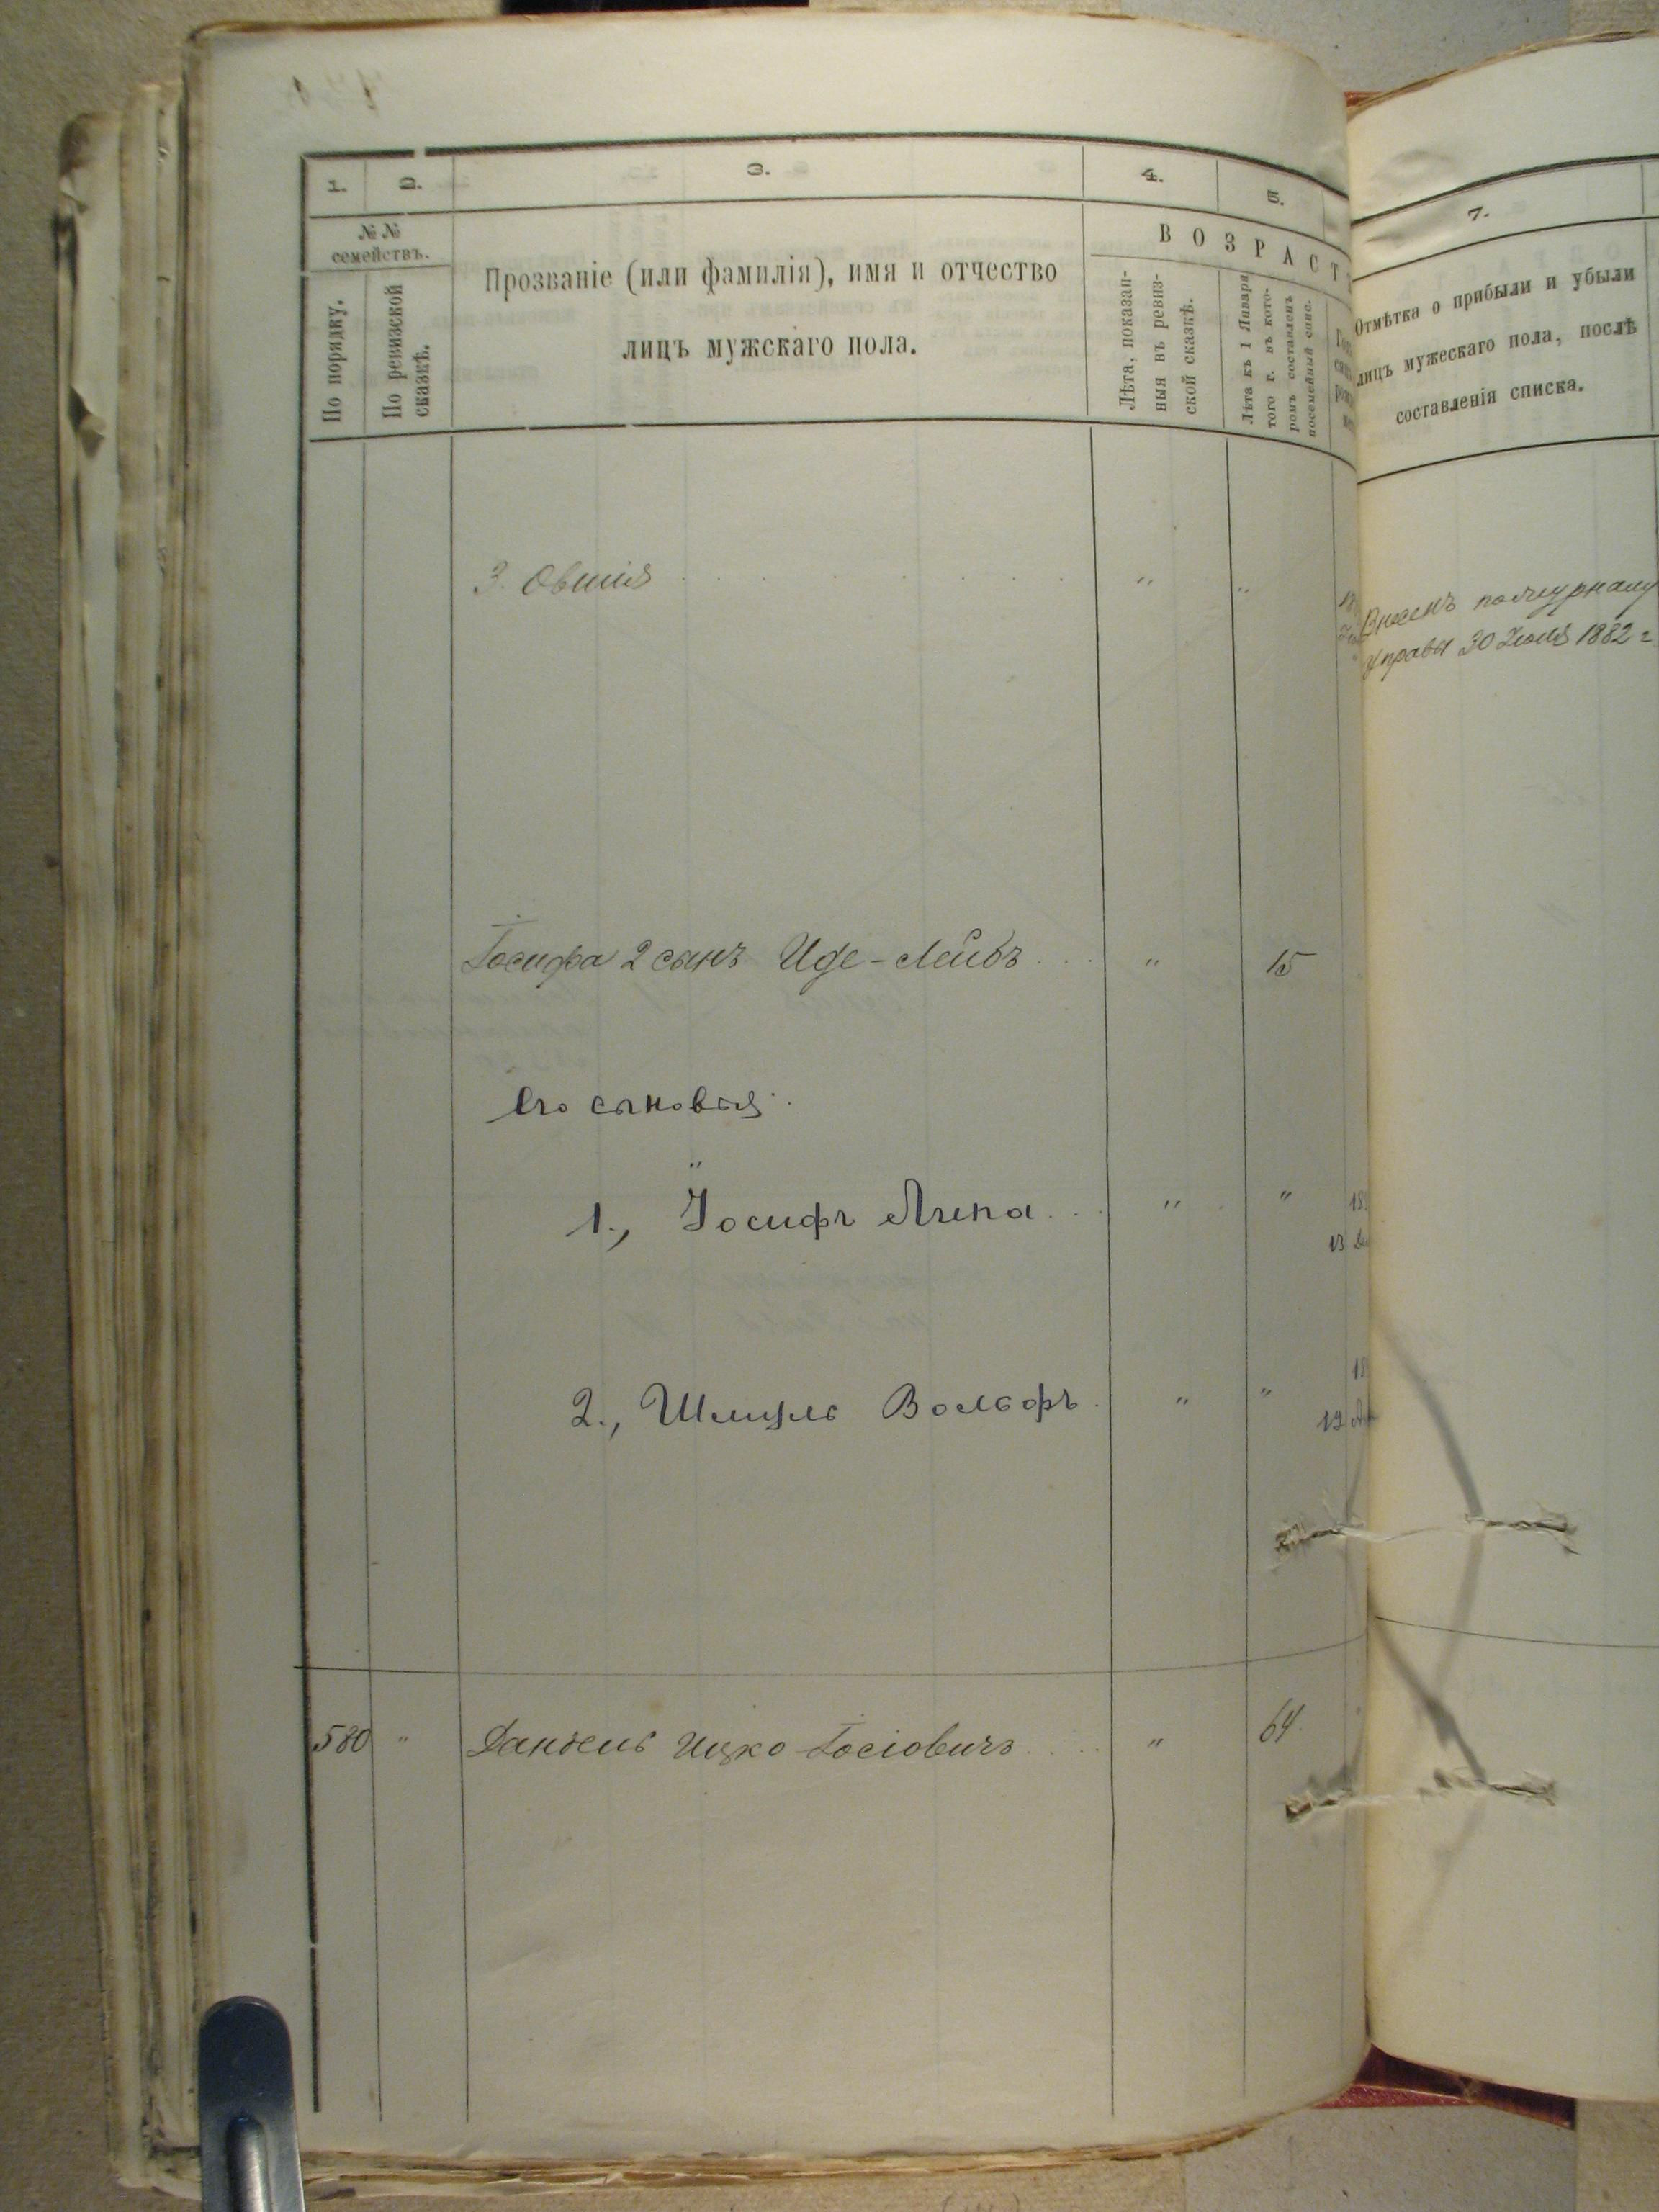 1.
2.
3.
4.
5.
7.
№ №
семействъ.
По порядку.
По ревизской
сказкѣ.
Прозваніе (или фамилія), имя и отчество
лицъ мужскаго пола.
ВОЗРАСТ
Лѣта, показан-
ныя въ ревиз-
ской сказкѣ.
Лѣта къ 1 Января
того г. въ кото-
ромъ составленъ
посемейный спис.
Отмѣтка о прибыли и убыли
лицъ мужескаго пола, послѣ
составленія списка.
3. Овшія " "
Внесенъ по журналу
Управы 30 Іюля 1882 г
Іосифа 2 сынъ Иде-Лейбъ " 15
Его сыновья:
1., Іосифъ Липа " "
13
2., Шмуль Вольфъ " "
19
580 " Данцель Ицко Іосіовичъ " 64